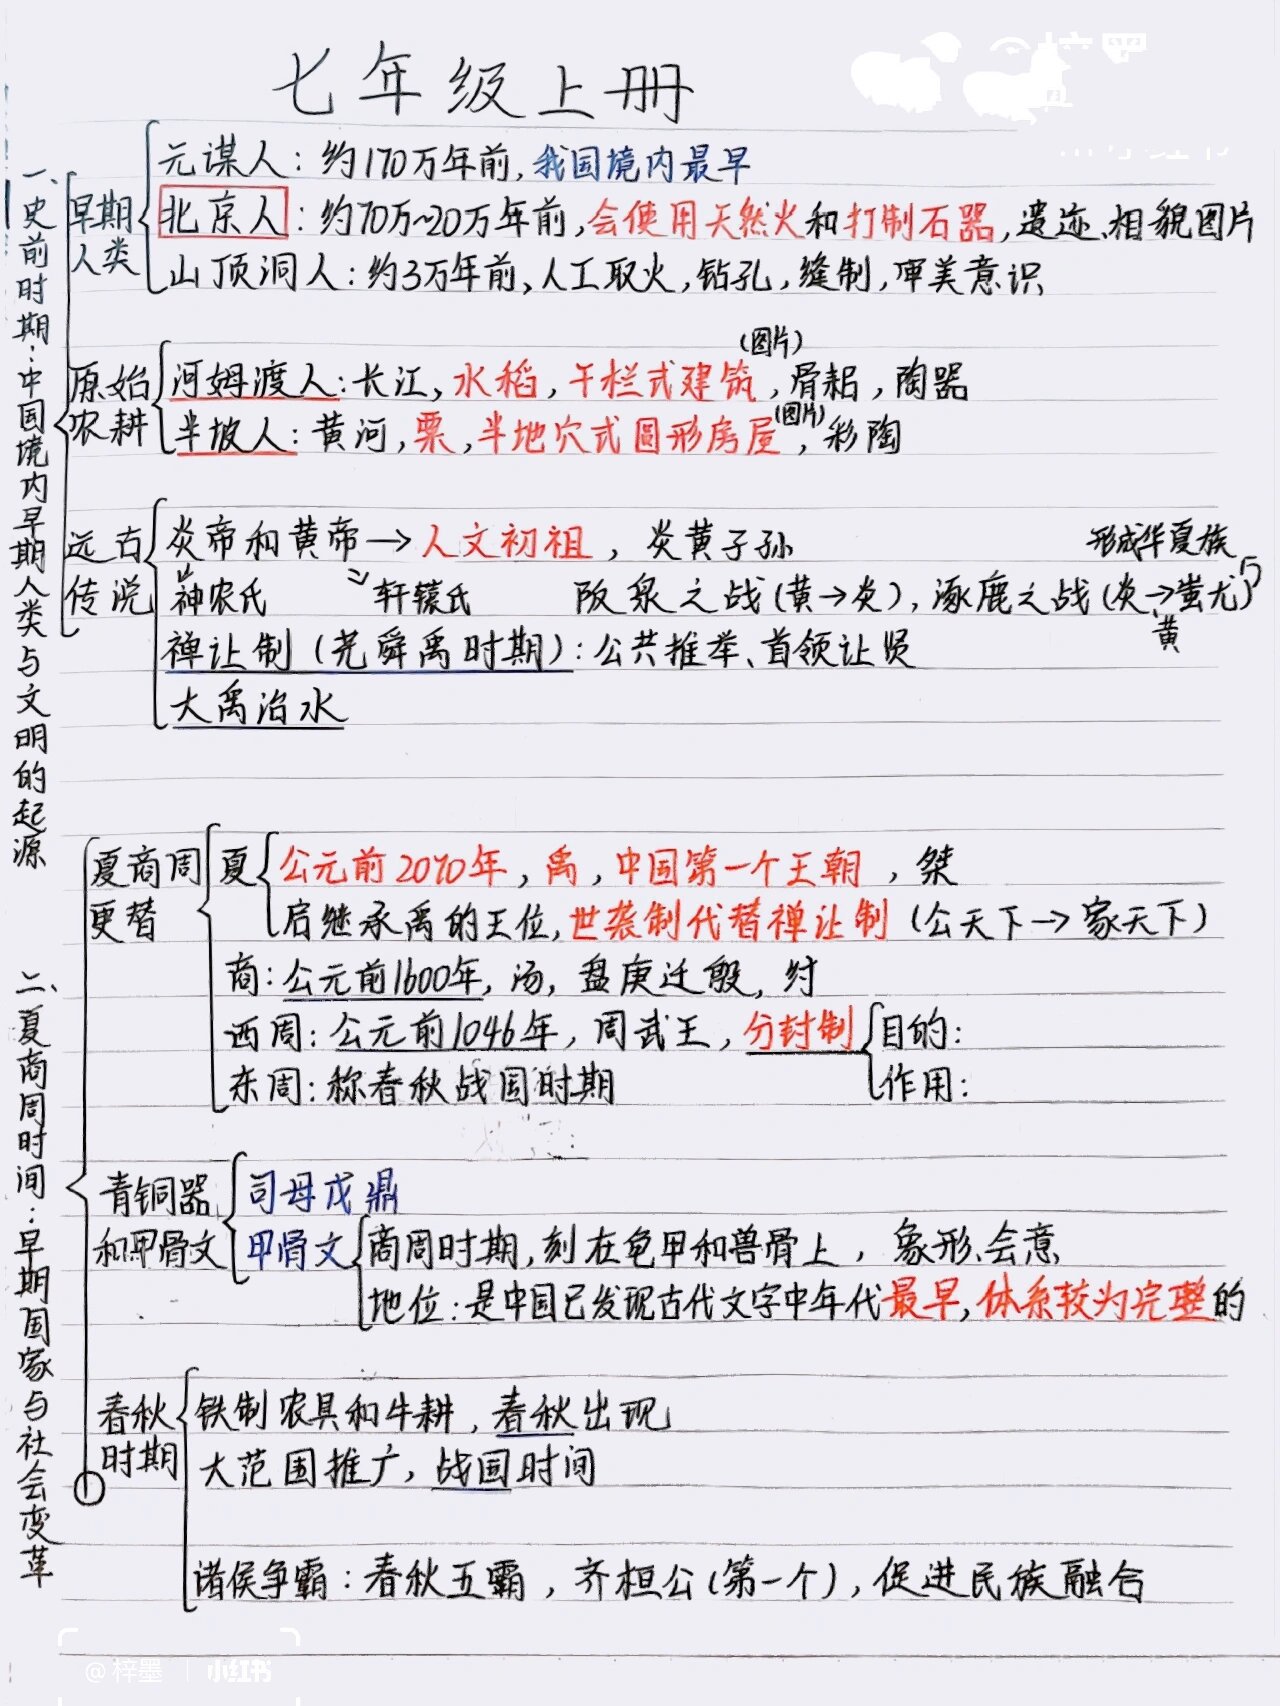 七年级上册
一、史前时期：中国境内早期人类与文明的起源
早期人类
元谋人：约170万年前，我国境内最早
北京人：约70万~20万年前，会使用天然火和打制石器，遗迹、相貌图片
山顶洞人：约3万年前，人工取火，钻孔，缝制，审美意识
原始农耕
(图片)
河姆渡人：长江，水稻，干栏式建筑，骨耜，陶器
(图片)
半坡人：黄河，粟，半地穴式圆形房屋，彩陶
远古传说
炎帝和黄帝→人文初祖，炎黄子孙
形成华夏族
神农氏 轩辕氏 阪泉之战(黄→炎)，涿鹿之战(炎→蚩尤)
黄
禅让制(尧舜禹时期)：公共推举、首领让贤
大禹治水
二、夏商周时间：早期国家与社会变革
夏商周更替
夏
公元前2070年，禹，中国第一个王朝，桀
启继承禹的王位，世袭制代替禅让制(公天下→家天下)
商：公元前1600年，汤，盘庚迁殷，纣
西周：公元前1046年，周武王，分封制
目的：
作用：
东周：称春秋战国时期
青铜器和甲骨文
司母戊鼎
甲骨文
商周时期，刻在龟甲和兽骨上，象形、会意
地位：是中国已发现古代文字中年代最早，体系较为完整的
春秋时期
铁制农具和牛耕，春秋出现
大范围推广，战国时间
诸侯争霸：春秋五霸，齐桓公(第一个)，促进民族融合
@梓墨 | 小红书